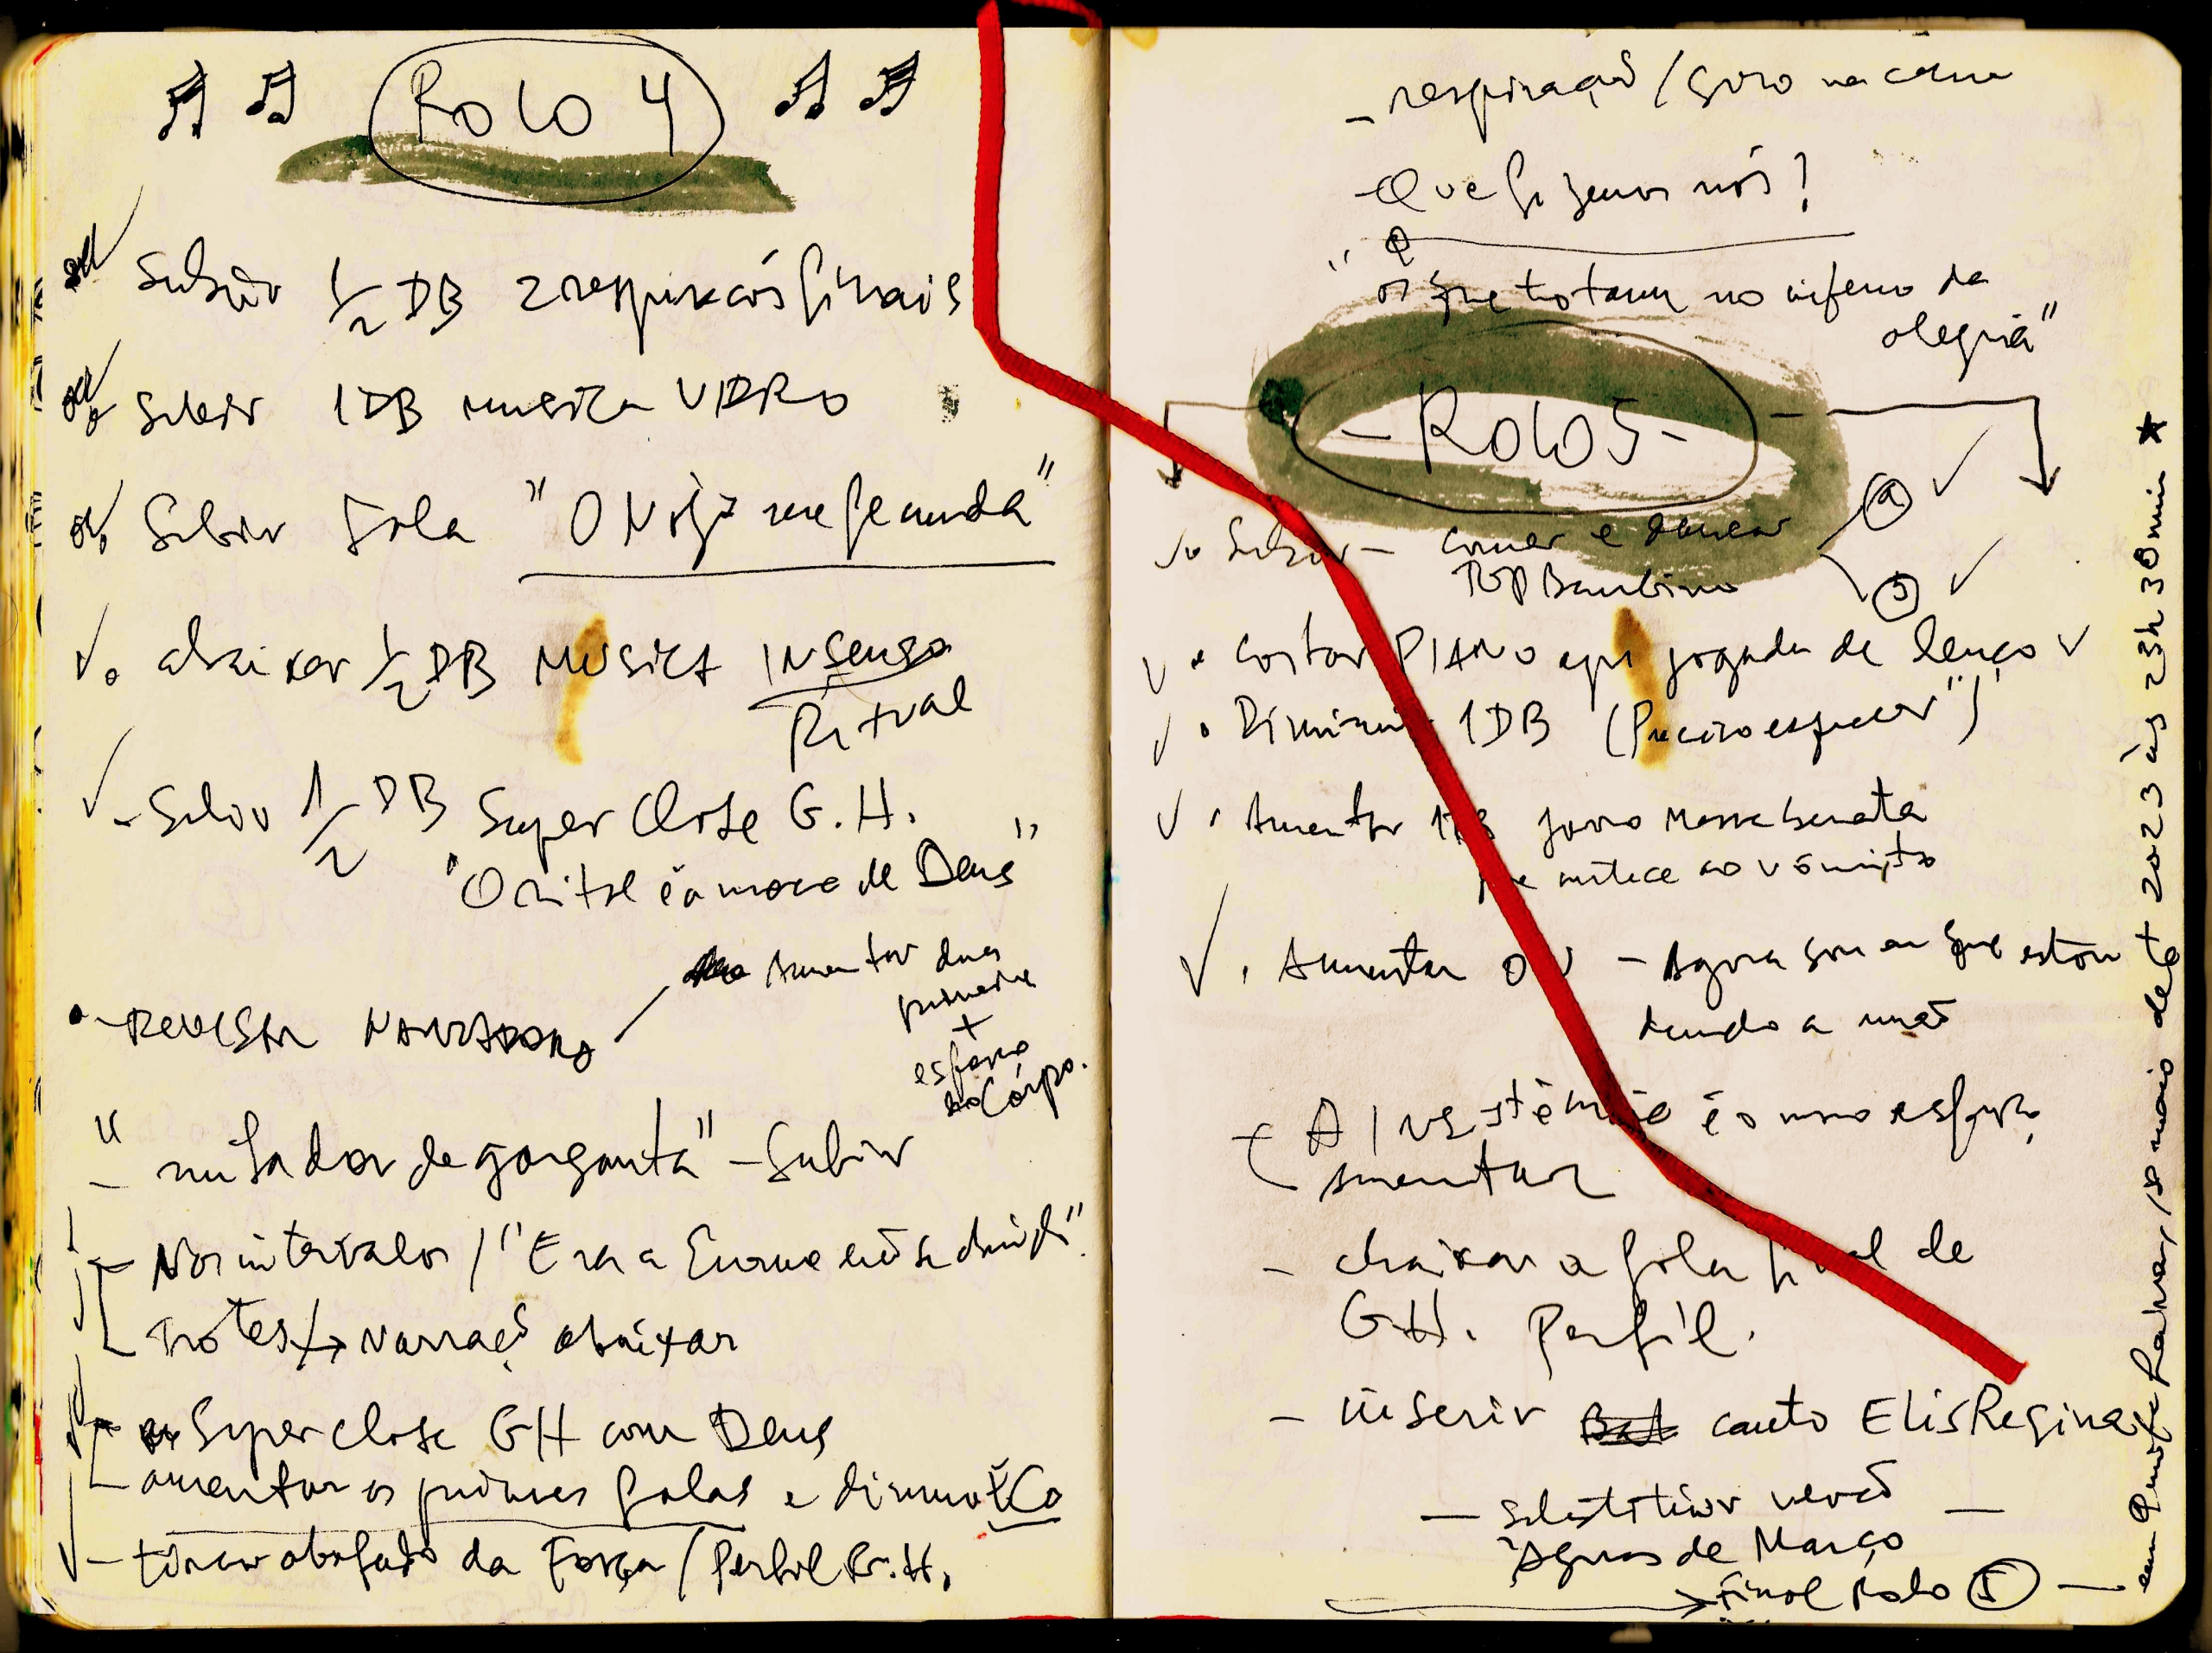 Rolo 4
Subir 1/2 DB 2 respirações finais
Subir 1DB musica VIDRO
Subir Fala "O Nojo me fecunda"
abaixar 1/2 DB MUSICA INSENSO
Ritual
- Subir 1/2 DB Super Close G.H.
"O rito é a marca de Deus"
- REVISAR NARRADORA
Aumentar duas
primeiras
+
esforço
Corpo.
" de garganta" - Subir
- Nos intervalos / "Era a
Trotes / → Narração abaixar
Super close GH com Deus
aumentar as primeiras falas e
- tirar abafado da Força / Perfil G.H.
- respiração / Giro na cama
- Que fizemos nós?
"
os que totam no inferno da
alegria"
- Rolo 5 -
Subir - comer e dançar
Bambino
• Cortar PIANO após jogada de lenço
• Diminuir 1DB (Preciso esquecer")
• Aumentar 1DB Massa branca
antece ao vômito
• Aumentar OV - Agora sou eu que estou
dando a mão
- A insistência é o nosso esforço
Aumentar
- abaixar a fala final de
G.H. Perfil.
- inserir canto Elis Regina
- Substituir versão -
"Aguas de Março
→ Final Rolo 5 -
em Quinta feira, 18 maio de 2023 às 23h30min ★